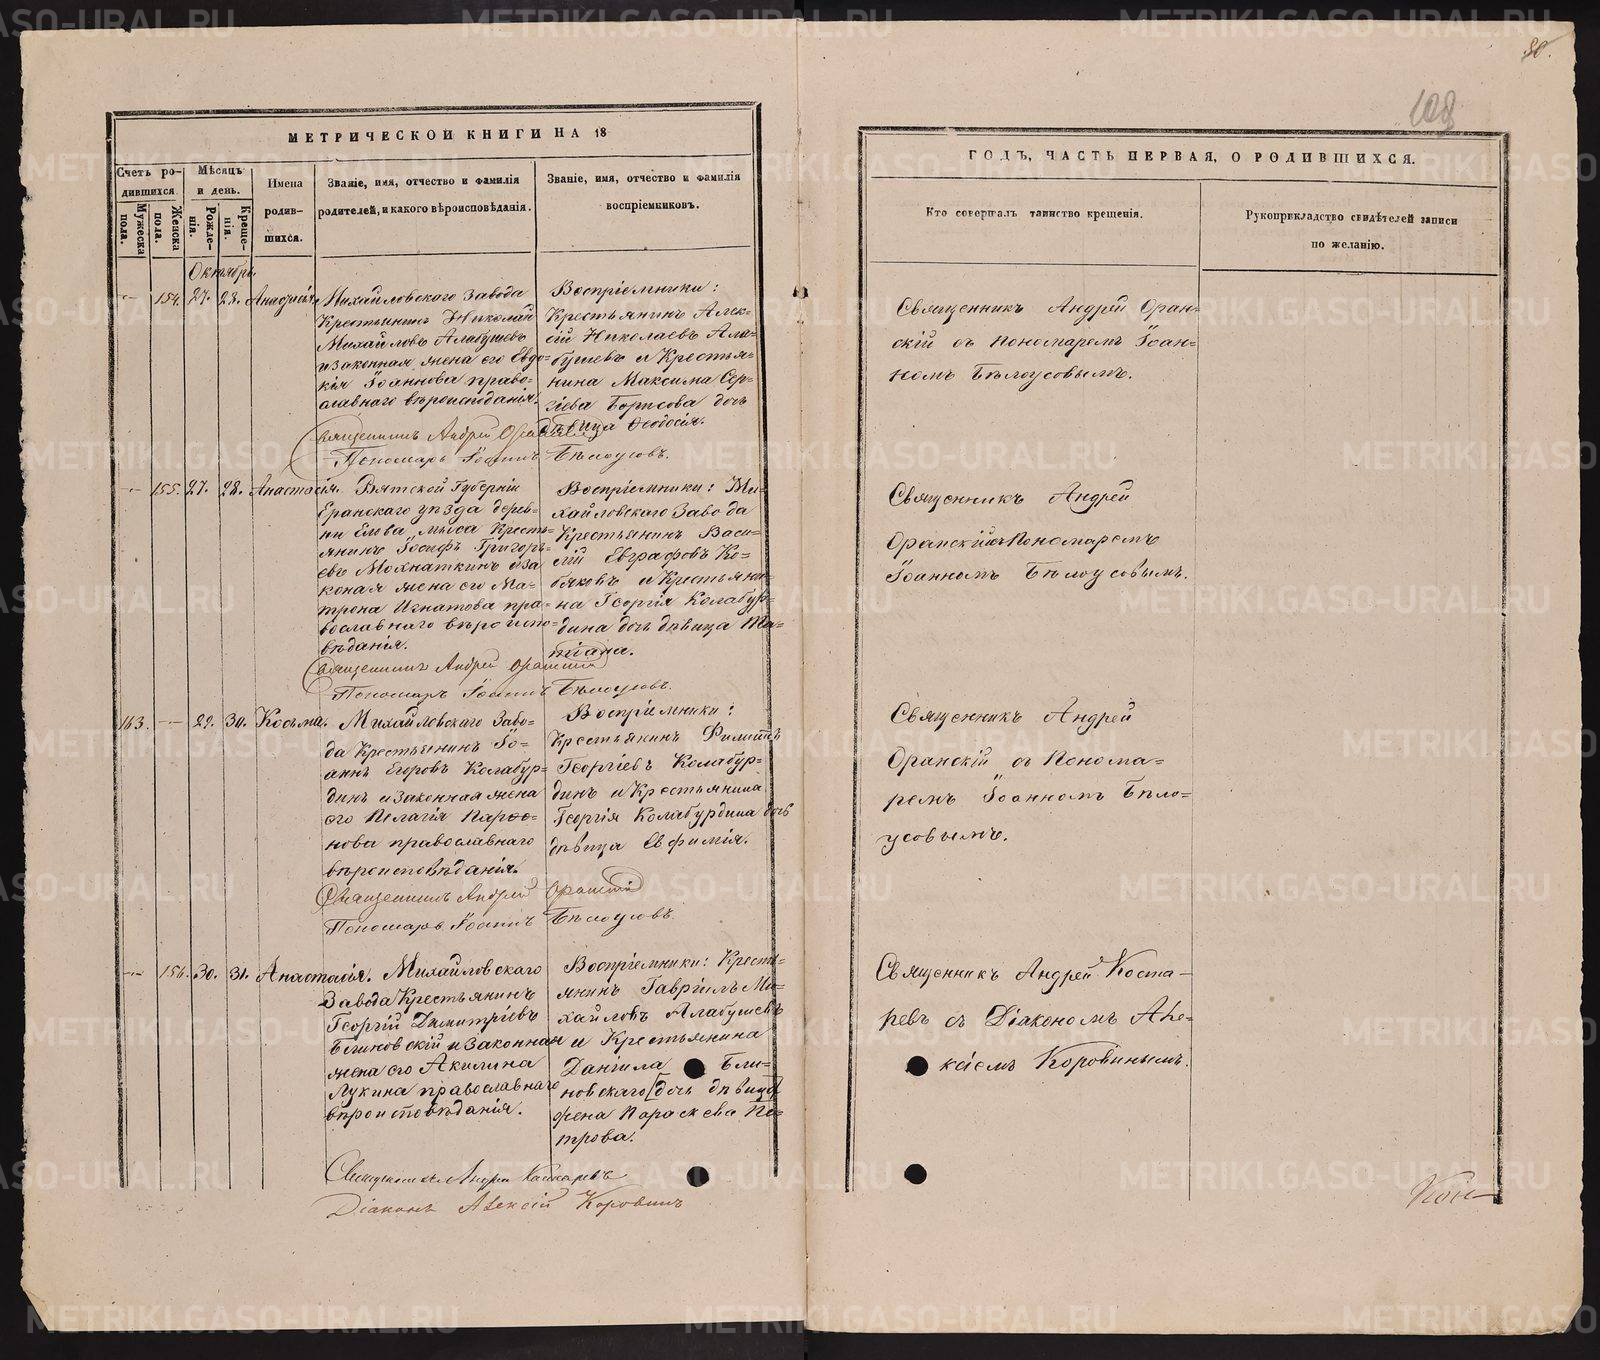 80.
108
МЕТРИЧЕСКОЙ КНИГИ НА 18
Счетъ ро-
дившихся.
Мужеска пола.
Женска пола.
Мѣсяцъ
и день.
Рожде-
нія.
Креще-
нія.
Имена
родив-
шихся.
Званіе, имя, отчество и фамилія
родителей, и какого вѣроисповѣданія.
Званіе, имя, отчество и фамилія
воспріемниковъ.
Октябрь.
154. 27. 28. Анастасія.
Михайловскаго Завода
Крестьянинъ Николай
Михайловъ Алабушевъ
и законная жена его Евдо-
кія Іоаннова право-
славнаго вѣроисповѣданія.
Воспріемники:
Крестьянинъ Алек-
сій Николаевъ Ала-
бушевъ и Крестья-
нина Максима Сер-
гіева Борисова дочь
дѣвица Ѳеодосія.
Священникъ Андрей Оранскій
Пономарь Іоаннъ Бѣлоусовъ.
155. 27. 28. Анастасія.
Вятской Губерніи
Еранскаго уѣзда дерев-
ни Елова мыса Кресть-
янинъ Іосифъ Григорь-
евъ Мохнаткинъ и за-
коная жена его Ма-
трона Игнатова пра-
вославнаго вѣроиспо-
вѣданія.
Воспріемники: Ми-
хайловскаго Завода
Крестьянинъ Васи-
лій Евграфовъ Ко-
бяковъ и Крестьяни-
на Георгія Колабур-
дина дочь дѣвица Та-
тіана.
Священникъ Андрей Оранскій
Пономарь Іоаннъ Бѣлоусовъ.
163. 29. 30. Косьма.
Михайловскаго Заво-
да Крестьянинъ Іо-
аннъ Егоровъ Колабур-
динъ и законная жена
его Пелагія Парѳе-
нова православнаго
вѣроисповѣданія.
Воспріемники:
Крестьянинъ Филиппъ
Георгіевъ Колабур-
динъ и Крестьянина
Георгія Колабурдина дочь
дѣвица Евфимія.
Священникъ Андрей Оранскій
Пономарь Іоаннъ Бѣлоусовъ.
156. 30. 31. Анастасія.
Михайловскаго
Завода Крестьянинъ
Георгій Димитріевъ
Блиновскій и законная
жена его Акилина
Лукина православнаго
вѣроисповѣданія.
Воспріемники: Кресть-
янинъ Гавріилъ Ми-
хайловъ Алабушевъ
и Крестьянина
Даніила Бли-
новскаго [дочь дѣвица]
жена Параскева Пе-
трова.
Священникъ Андрей Костаревъ
Діаконъ Алексій Коровинъ
ГОДЪ, ЧАСТЬ ПЕРВАЯ, О РОДИВШИХСЯ.
Кто совершалъ таинство крещенія.
Рукоприкладство свидѣтелей записи
по желанію.
Священникъ Андрей Оран-
скій съ Пономаремъ Іоан-
номъ Бѣлоусовымъ.
Священникъ Андрей
Оранскій съ Пономаремъ
Іоанномъ Бѣлоусовымъ.
Священникъ Андрей
Оранскій съ Понома-
ремъ Іоанномъ Бѣло-
усовымъ.
Священникъ Андрей Коста-
ревъ съ Діакономъ Але-
ксіемъ Коровинымъ.
METRIKI.GASO-URAL.RU